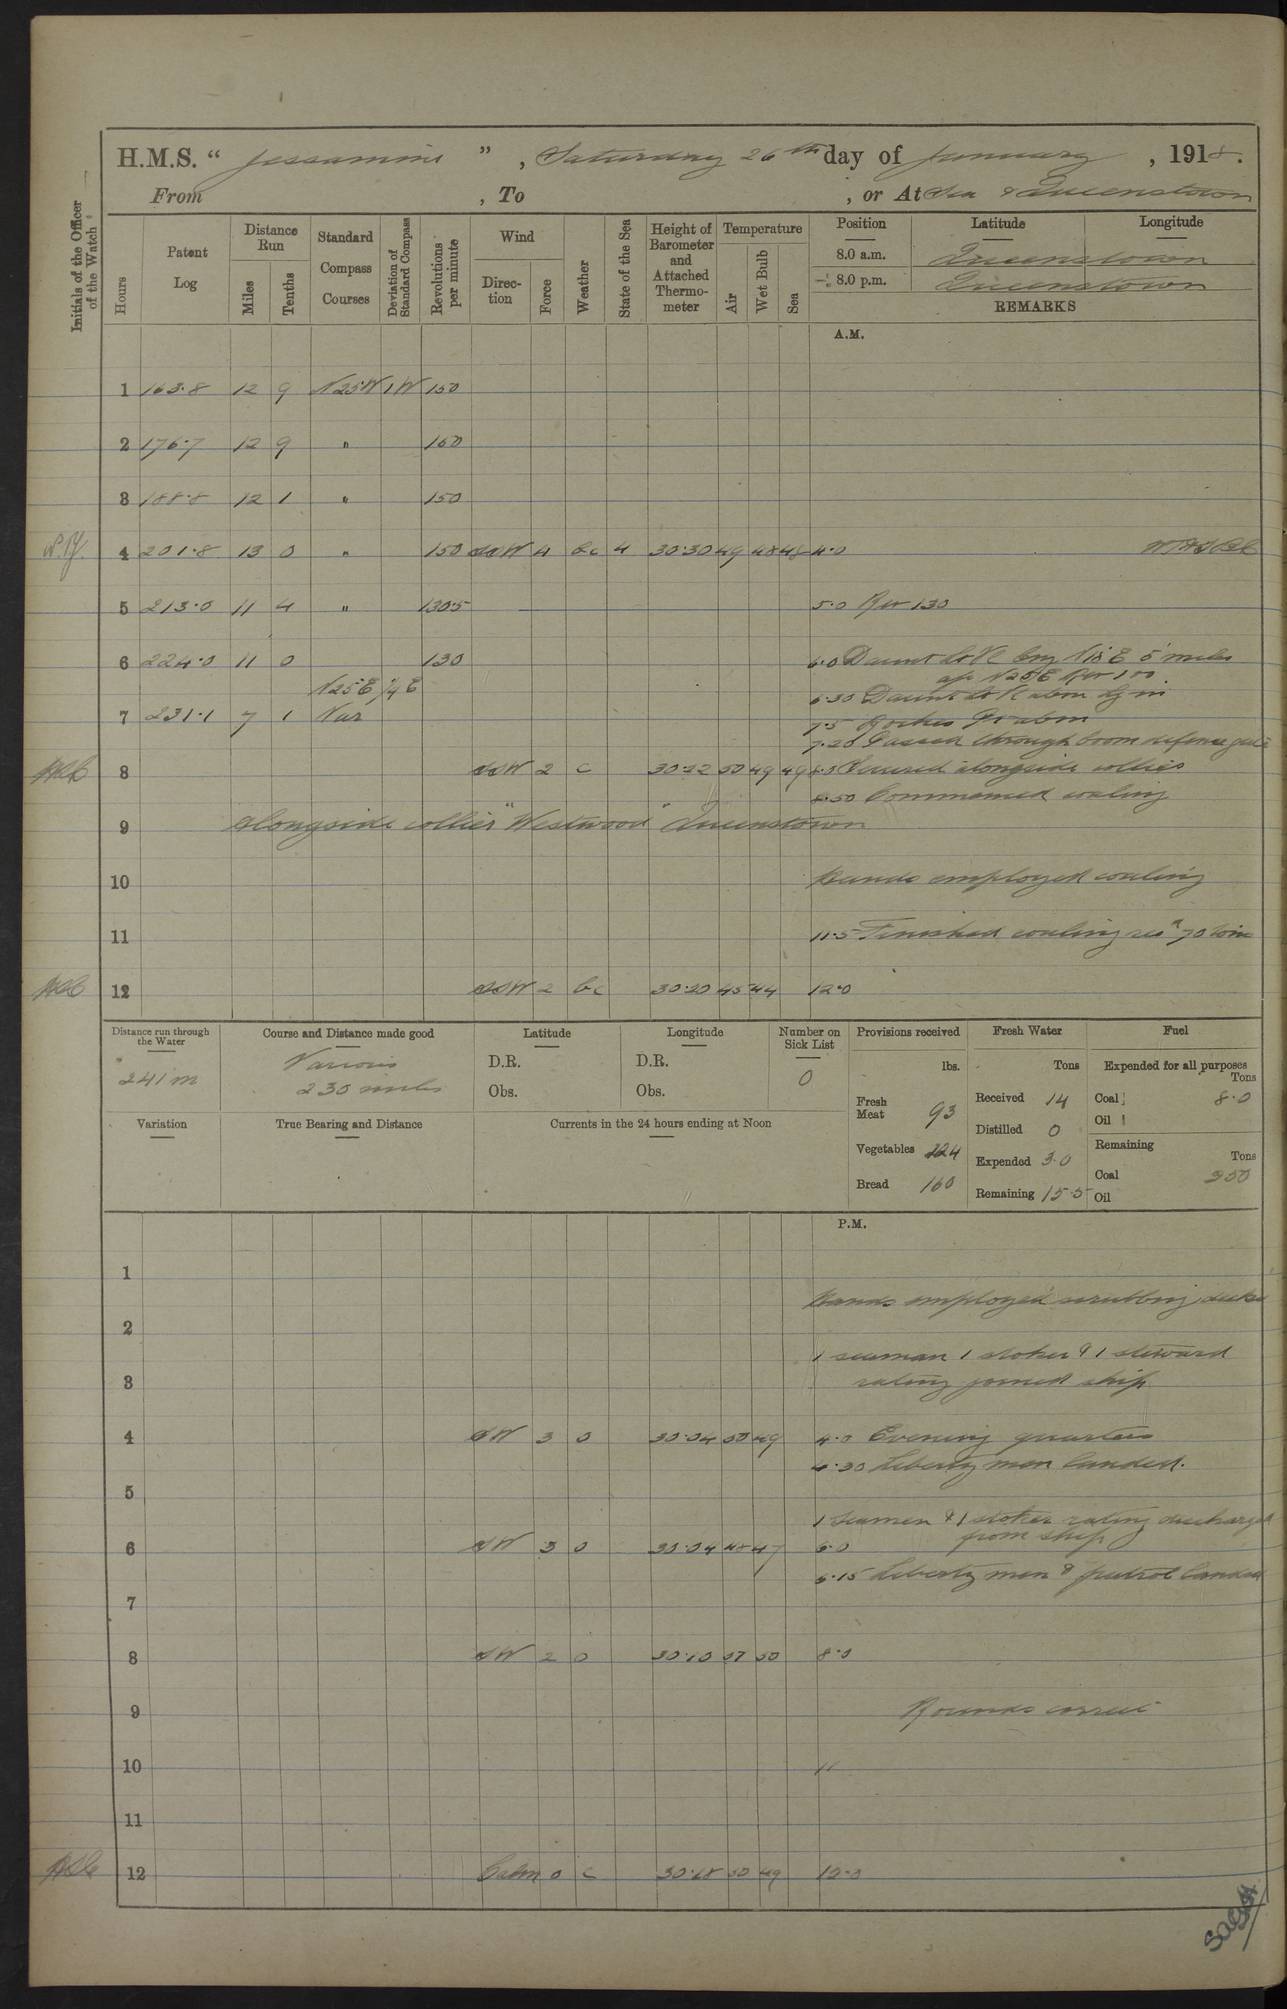 H.M.S. " Jessamine " , Saturday 26th day of January , 1918.
From , To , or At Sea & Queenstown
Initials of the Officer of the Watch
Hours
Patent Log
Distance Run
Miles
Tenths
Standard Compass Courses
Deviation of Standard Compass
Revolutions per minute
Wind
Direction
Force
Weather
State of the Sea
Height of Barometer and Attached Thermometer
Temperature
Air
Wet Bulb
Sea
Position Latitude Longitude
8.0 a.m. Queenstown
8.0 p.m. Queenstown
REMARKS
A.M.
1 163.8 12 9 N25W 1W 150
2 176.7 12 9 " 160
3 188.8 12 1 " 150
4 201.8 13 0 " 150 SSW 4 bc 4 30.30 49 48 48 4.0
5 213.0 11 4 " 130.5 5.0 Rev 130
6 224.0 11 0 130 6.0 Daunt Lt Vl brg N18E 5 miles
a/c N25E Rev 100.
N25E 1/4 E 6.30 Daunt Lt Vl abm
7 231.1 7 1 Var 7.5 Roches Pt abm
7.20 Passed through boom defence gate
8 SSW 2 c 30.22 50 49 49 8.0 Secured alongside collier
8.50 Commenced coaling
9 Alongside collier "Westwood" Queenstown
10 Hands employed coaling
11 11.5 Finished coaling recd 70 tons
12 SSW 2 bc 30.20 45 44 12.0
Distance run through the Water
241 m
Course and Distance made good
Various
230 miles
Latitude
D.R.
Obs.
Longitude
D.R.
Obs.
Number on Sick List
0
Provisions received
lbs.
Fresh Meat 93
Vegetables 224
Bread 160
Fresh Water
Tons
Received 14
Distilled 0
Expended 3.0
Remaining 15.5
Fuel
Expended for all purposes
Tons
Coal 8.0
Oil
Remaining
Tons
Coal 250
Oil
Variation
True Bearing and Distance
Currents in the 24 hours ending at Noon
P.M.
1
Hands employed scrubbing decks
2
1 seaman 1 stoker & 1 steward
3 rating joined ship
4 SW 3 0 30.04 50 49 4.0 Evening quarters
4.30 Liberty men landed.
5
1 seamen & 1 stoker rating discharged
from ship
6 SW 3 0 30.04 48 47 6.0
6.15 Liberty men & patrol landed
7
8 SW 2 0 30.10 51 50 8.0
9 Rounds correct
10 "
11
12 Calm 0 c 30.18 50 49 12.0